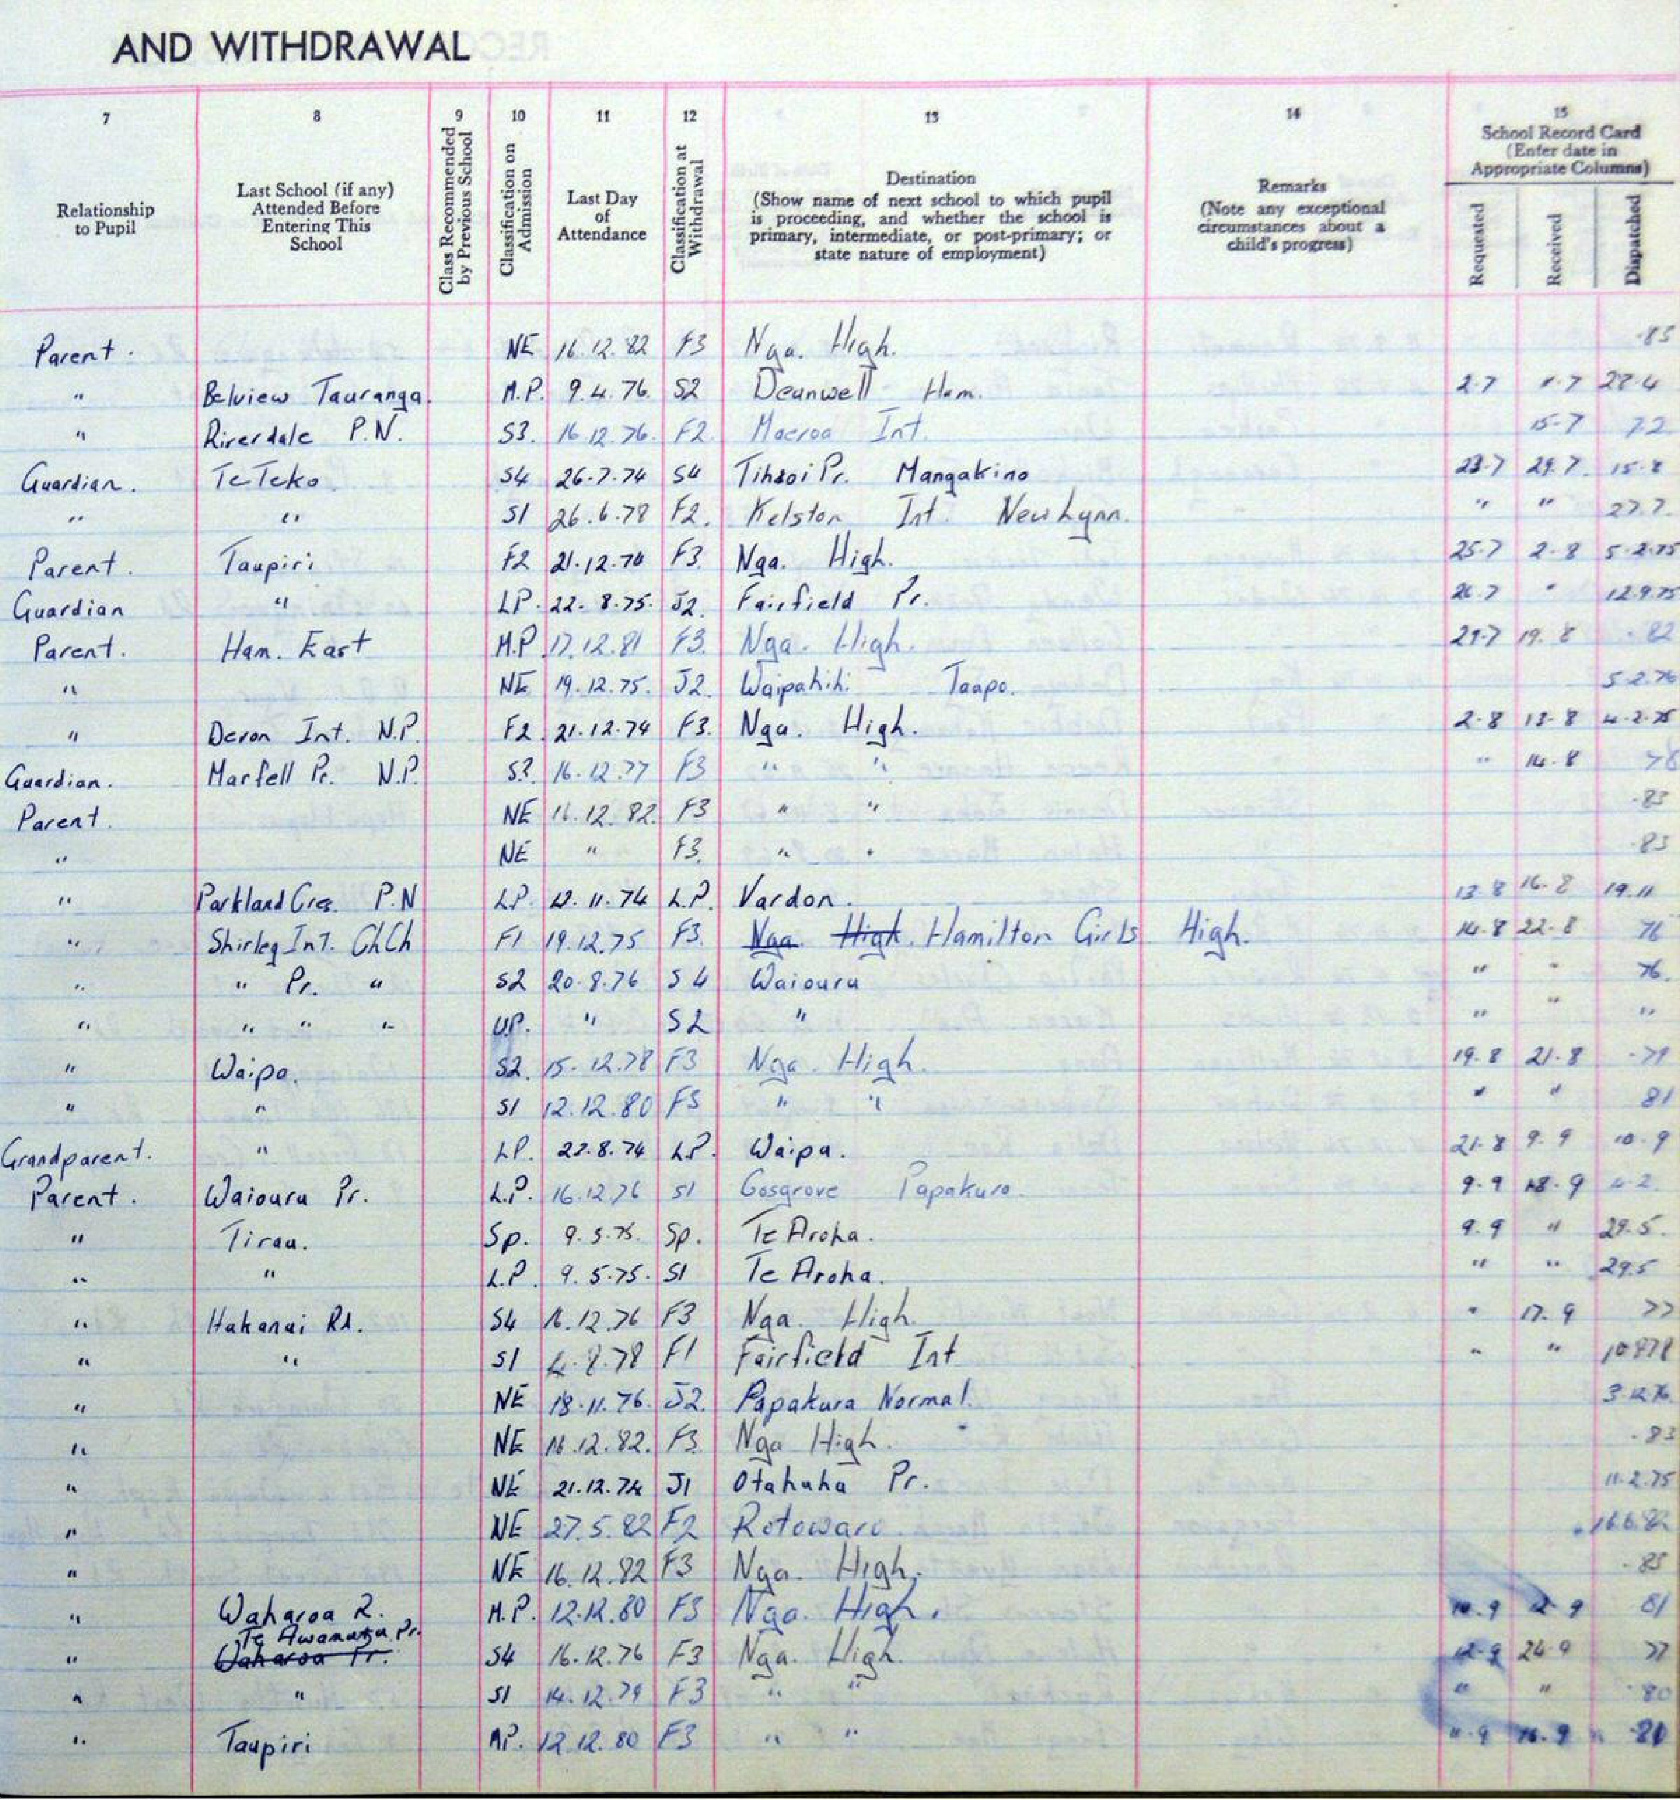 AND WITHDRAWAL
7 8 9 10 11 12 13 14 15
Relationship to Pupil
Last School (if any) Attended Before Entering This School
Class Recommended by Previous School
Classification on Admission
Last Day of Attendance
Classification at Withdrawal
Destination
(Show name of next school to which pupil is proceeding, and whether the school is primary, intermediate, or post-primary; or state nature of employment)
Remarks
(Note any exceptional circumstances about a child's progress)
School Record Card
(Enter date in Appropriate Columns)
Requested Received Dispatched
Parent. NE 16.12.82 F3 Nga. High. -85
" Belview Tauranga. M.P. 9.4.76. S2 Deanwell Ham. 2.7 27.4
" Riverdale P.N. S3. 16.12.76. F2. Macroa Int. 15-7 7.2
Guardian. Te Teko S4 26.7.74 S4 Tihoi Pr. Mangakino 23.7 29.7. 15.8
" " S1 26.6.78 F2. Kelston Int. New Lynn. " " 27.7
Parent. Taupiri F2 21.12.74 F3. Nga. High. 25.7 2-8 5.2.75
Guardian " LP. 22.8.75. J2. Fairfield Pr. 26.7 " 12.9.75
Parent. Ham. East M.P 17.12.81 F3. Nga. High. 29.7 19.8 -82
" NE 19.12.75. J2. Waipahihi Taupo. 5.2.76
" Devon Int. N.P. F2. 21.12.74 F3. Nga. High. 2.8 13-8 4.2.75
Guardian. Marfell Pr. N.P. S3. 16.12.77 F3 " " " 14.8 78
Parent. NE 16.12.82. F3 " " -83
" NE " F3. " " -83
" Parkland Cres. P.N L.P. 12.11.74 L.P. Vardon. 13.8 16.8 19.11
" Shirley Int. ChCh F1 19.12.75 F3. Nga High. Hamilton Girls High. 14.8 22.8 76
" " Pr. " S2 20.8.76 S4 Waiouru " " 76.
" " " " U.P. " S2 " " " "
" Waipa. S2. 15.12.78 F3 Nga. High. 19.8 21.8 -79
" " S1 12.12.80 F3 " " " " 81
Grandparent. " L.P. 22.8.74 L.P. Waipa. 21.8 9.9 10.9
Parent. Waiouru Pr. L.P. 16.12.76 S1 Cosgrove Papakura. 9.9 18.9 4.2
" Tirau. Sp. 9.5.75. Sp. Te Aroha. 9.9 " 29.5.
" " L.P. 9.5.75. S1 Te Aroha. " " 29.5
" Hakanai Rd. S4 16.12.76 F3 Nga. High. " 17.9 77
" " S1 4.8.78 F1 Fairfield Int " " 10.8.78
" NE 18.11.76. J2. Papakura Normal. 3.12.76
" NE 16.12.82. F3. Nga High. -83
" NE 21.12.74 J1 Otahuhu Pr. 11.2.75
" NE 27.5.82 F2 Rotowaro. 16.6.82
" NE 16.12.82 F3 Nga. High. -85
" Waharoa R. M.P. 12.12.80 F3 Nga. High. 10.9 12.9 81
Te Awamutu Pr.
" Waharoa Pr. S4 16.12.76 F3 Nga. High. 12.9 24.9 77
" " S1 14.12.79 F3 " " " " 80
" Taupiri MP. 12.12.80 F3 " " 11.9 16.9 81